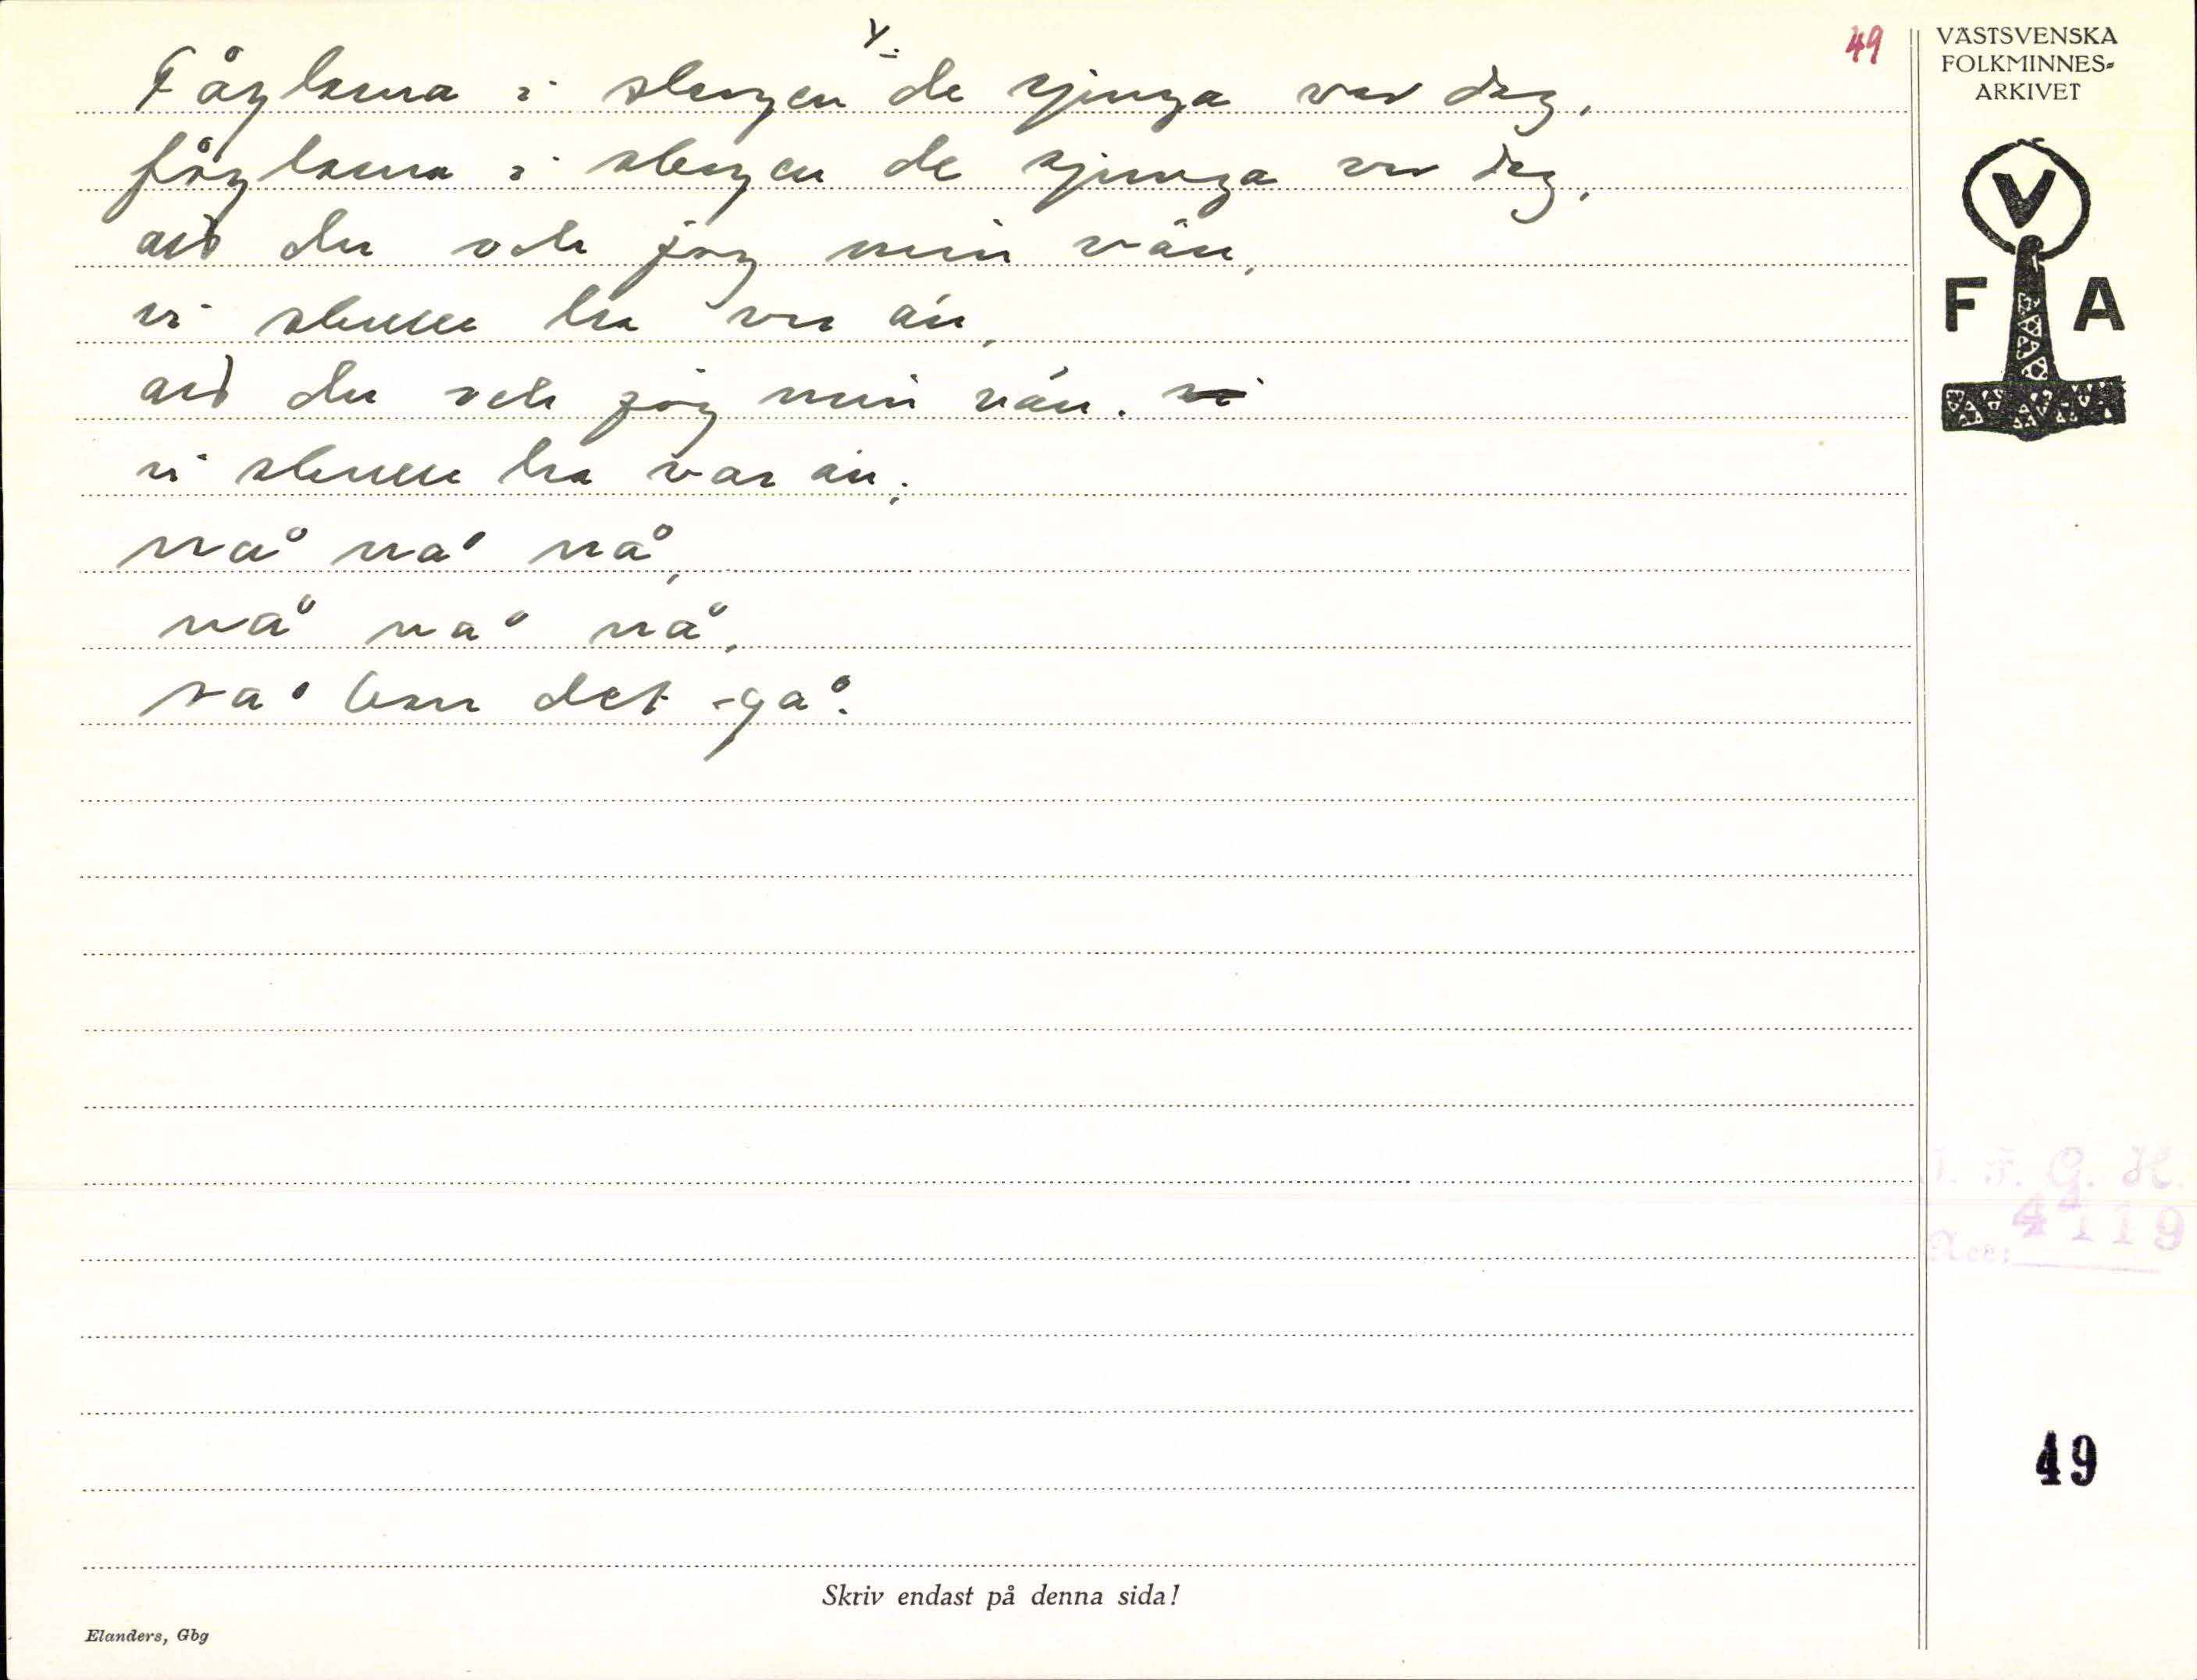 V.
49
Fåglarna i skogen de sjunga var dag,
fåglarna i skogen de sjunga var dag,
att du och jag min vän,
vi skulle ha var än,
att du och jag min vän.
vi skulle ha var än;
nå nå nå,
nå nå nå,
så kan det gå.
VÄSTSVENSKA
FOLKMINNES-
ARKIVET
V
F A
I. F. G. H.
Acc: 4119
49
Skriv endast på denna sida!
Elanders, Gbg